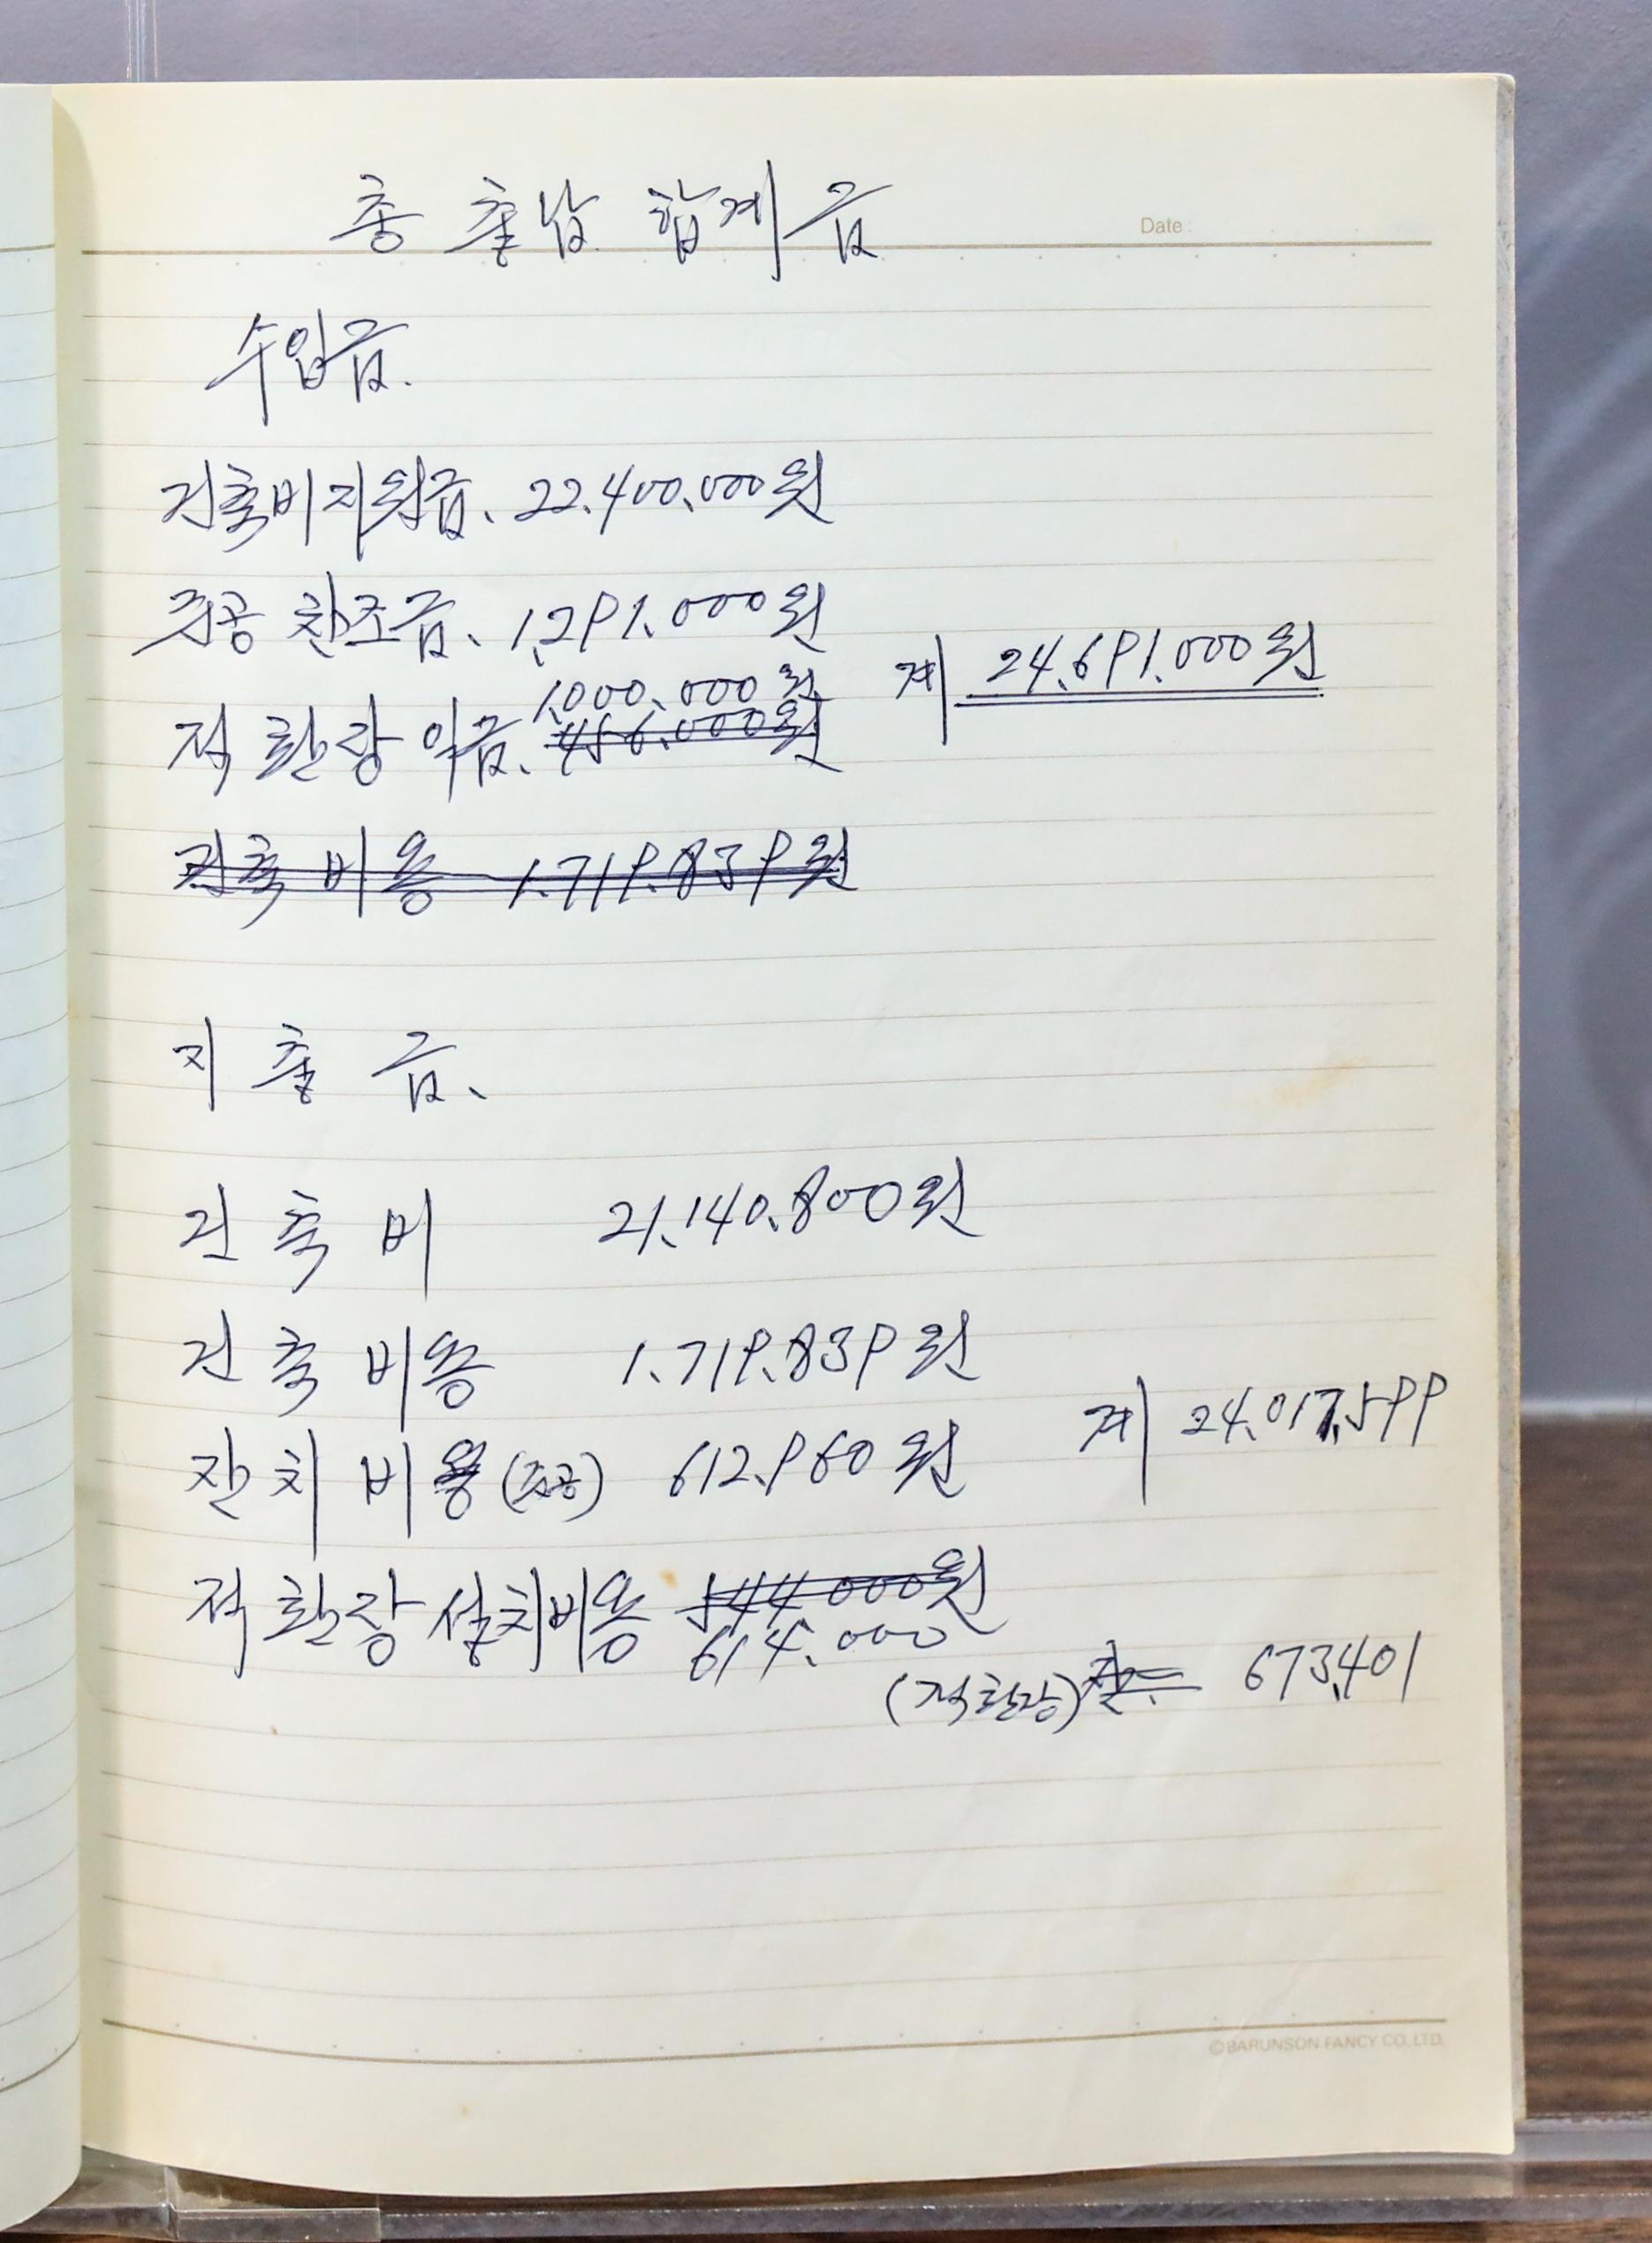 총 출납 합계금
Date :
수입금.
건축비지원금. 22.400.000원
준공 찬조금. 1.291.000원
계 24.691.000원
1.000.000원
적환장 이금. 456.000원
건축 비용 1.719.839원
지 출 금.
건 축 비 21.140.800원
건 축 비용 1.719.839원
잔치 비용 (준공) 612.960원
계 24.017.599
적환장 설치비용 544.000원
614.000
(적환장) 673.401
©BARUNSON FANCY CO. LTD.